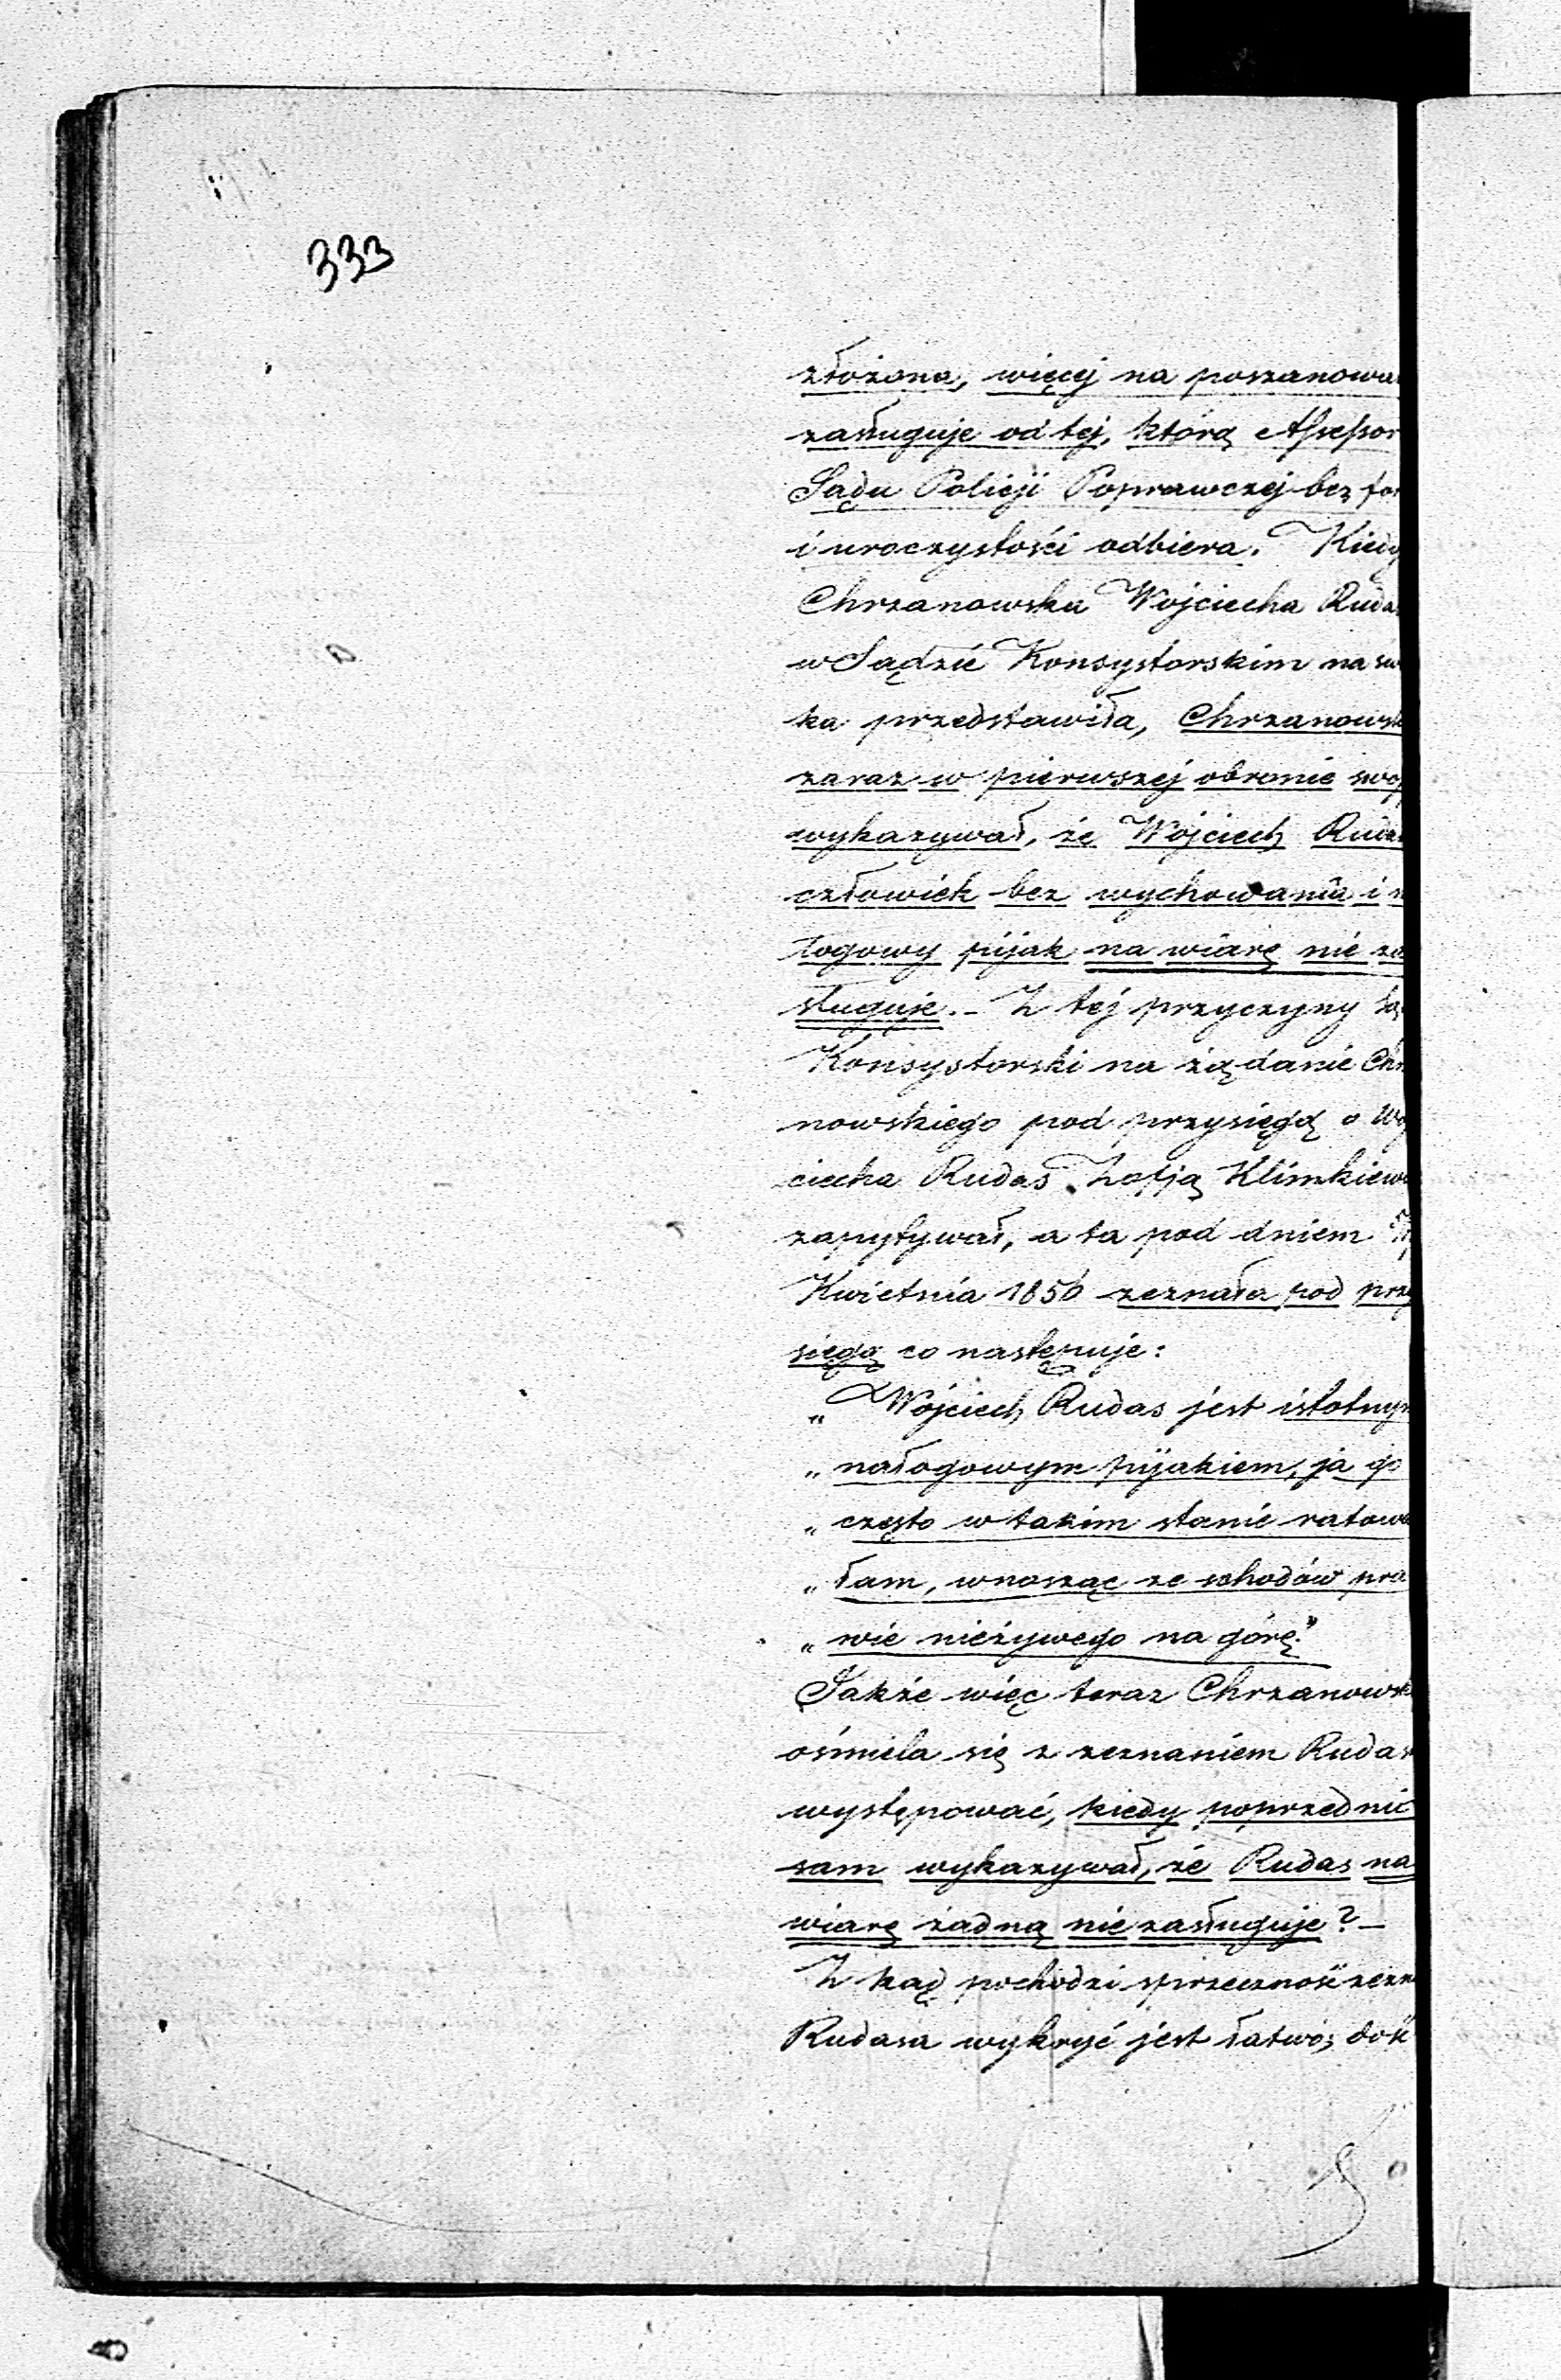 333
złożona, więcej na poszanowa
zasługuje od tej, którą Assessor
Sądu Policji Poprawczej bez for
i uroczystości odbiera. Kiedy
Chrzanowska Wojciecha Ruda
w Sądzie Konsystorskim na sw
ka przedstawiła, Chrzanowsk
zaraz w pierwszej obronie swoj
wykazywał, że Wojciech Ruda
człowiek bez wychowania i n
łogowy pijak na wiarę nie za
sługuje. – Z tej przyczyny Są
Konsystorski na żądanie Chr
nowskiego pod przysięgą o Woj
ciecha Rudas Zofją Klimkiew
zapytywał, a ta pod dniem
Kwietnia 1856 zeznała pod przy
sięgą co następuje:
„ Wojciech Rudas jest istotnym
„ nałogowym pijakiem, ja go
„ często w takim stanie ratowa
„ łam, wnosząc ze schodów pra
„ wie nieżywego na górę."
Jakże więc teraz Chrzanowsk
ośmiela się z zeznaniem Rudas
występować, kiedy poprzednio
sam wykazywał, że Rudas na
wiarę żadną nie zasługuje? –
Z kąd pochodzi sprzeczność zezn
Rudasa wykryć jest łatwo, dość